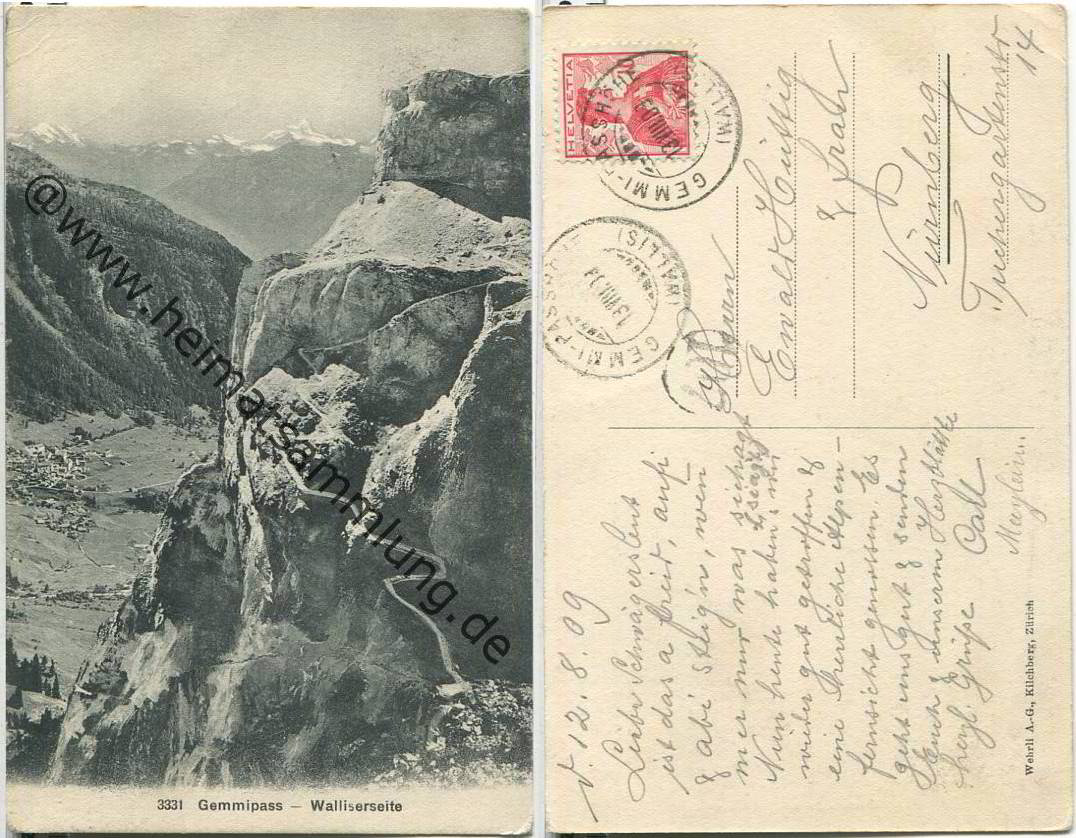 @www.heimatsammlung.de
3331 Gemmipass — Walliserseite
HELVETIA
10
GEMMI-PASSHÖHE
(WALLIS)
13.VIII.09
GEMMI-PASSHÖHE
(WALLIS)
13.VIII.09
Herrn
Ewald
& Frau
Nürnberg
Tuchergartenstr
14
d 12.8.09
Liebe Schwägersleut
ist das a freid, aufi
& abi steig'n, wem
mer nur was
Nun heute haben wir
wieder gut getroffen &
eine herrliche Alpen-
fernsicht genossen. Es
geht uns gut & senden
Euch & unserm
herzl. Grüße
Wehrli A.-G., Kilchberg, Zürich